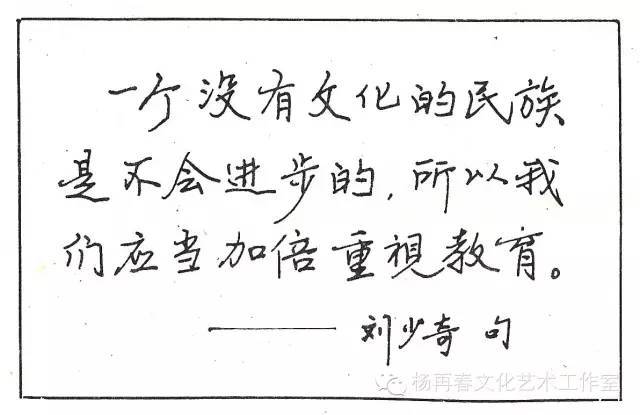 一个没有文化的民族
是不会进步的,所以我
们应当加倍重視教育。
——刘少奇 句
杨再春文化艺术工作室